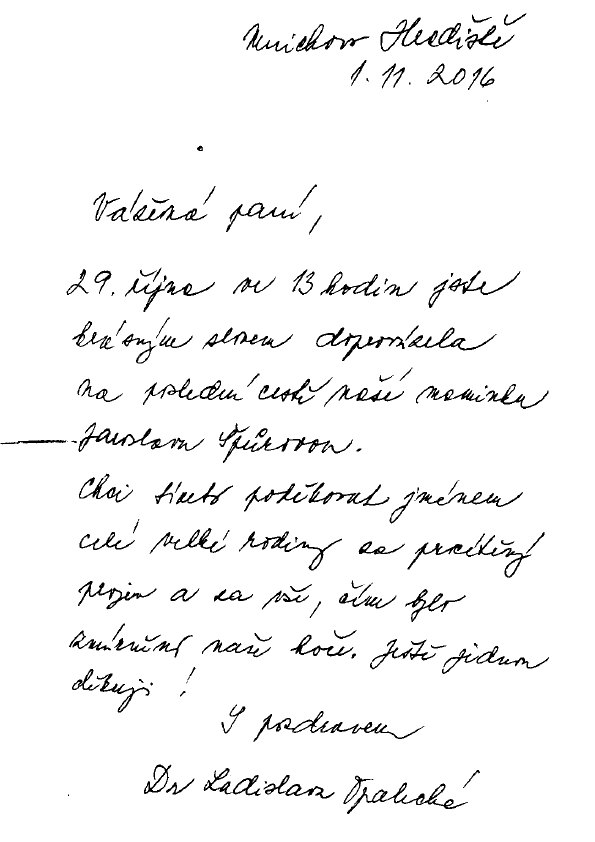 Mnichovo Hradiště
1. 11. 2016
Vážená paní,
29. října ve 13 hodin jste
krásným slovem doprovázela
na poslední cestě naší maminku
Jaroslavu
Chci tímto poděkovat jménem
celé velké rodiny za procítěný
projev a za vše, čím bylo
zmírněno naše hoře. Ještě jednou
děkuji!
S pozdravem
Dr Ladislava